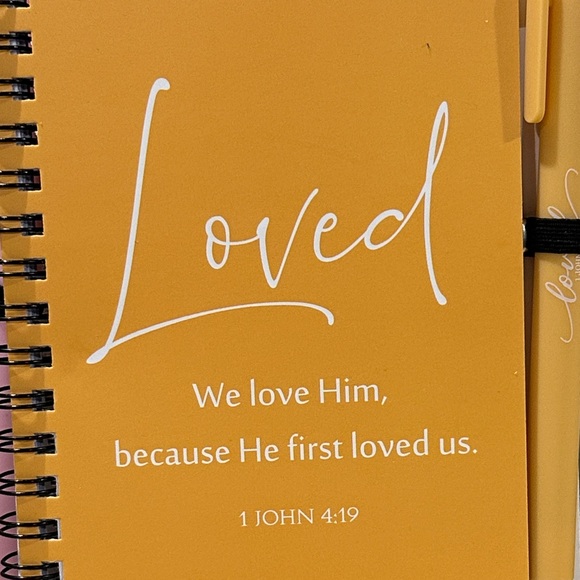 Loved
We love Him,
because He first loved us.
1 JOHN 4:19
loved